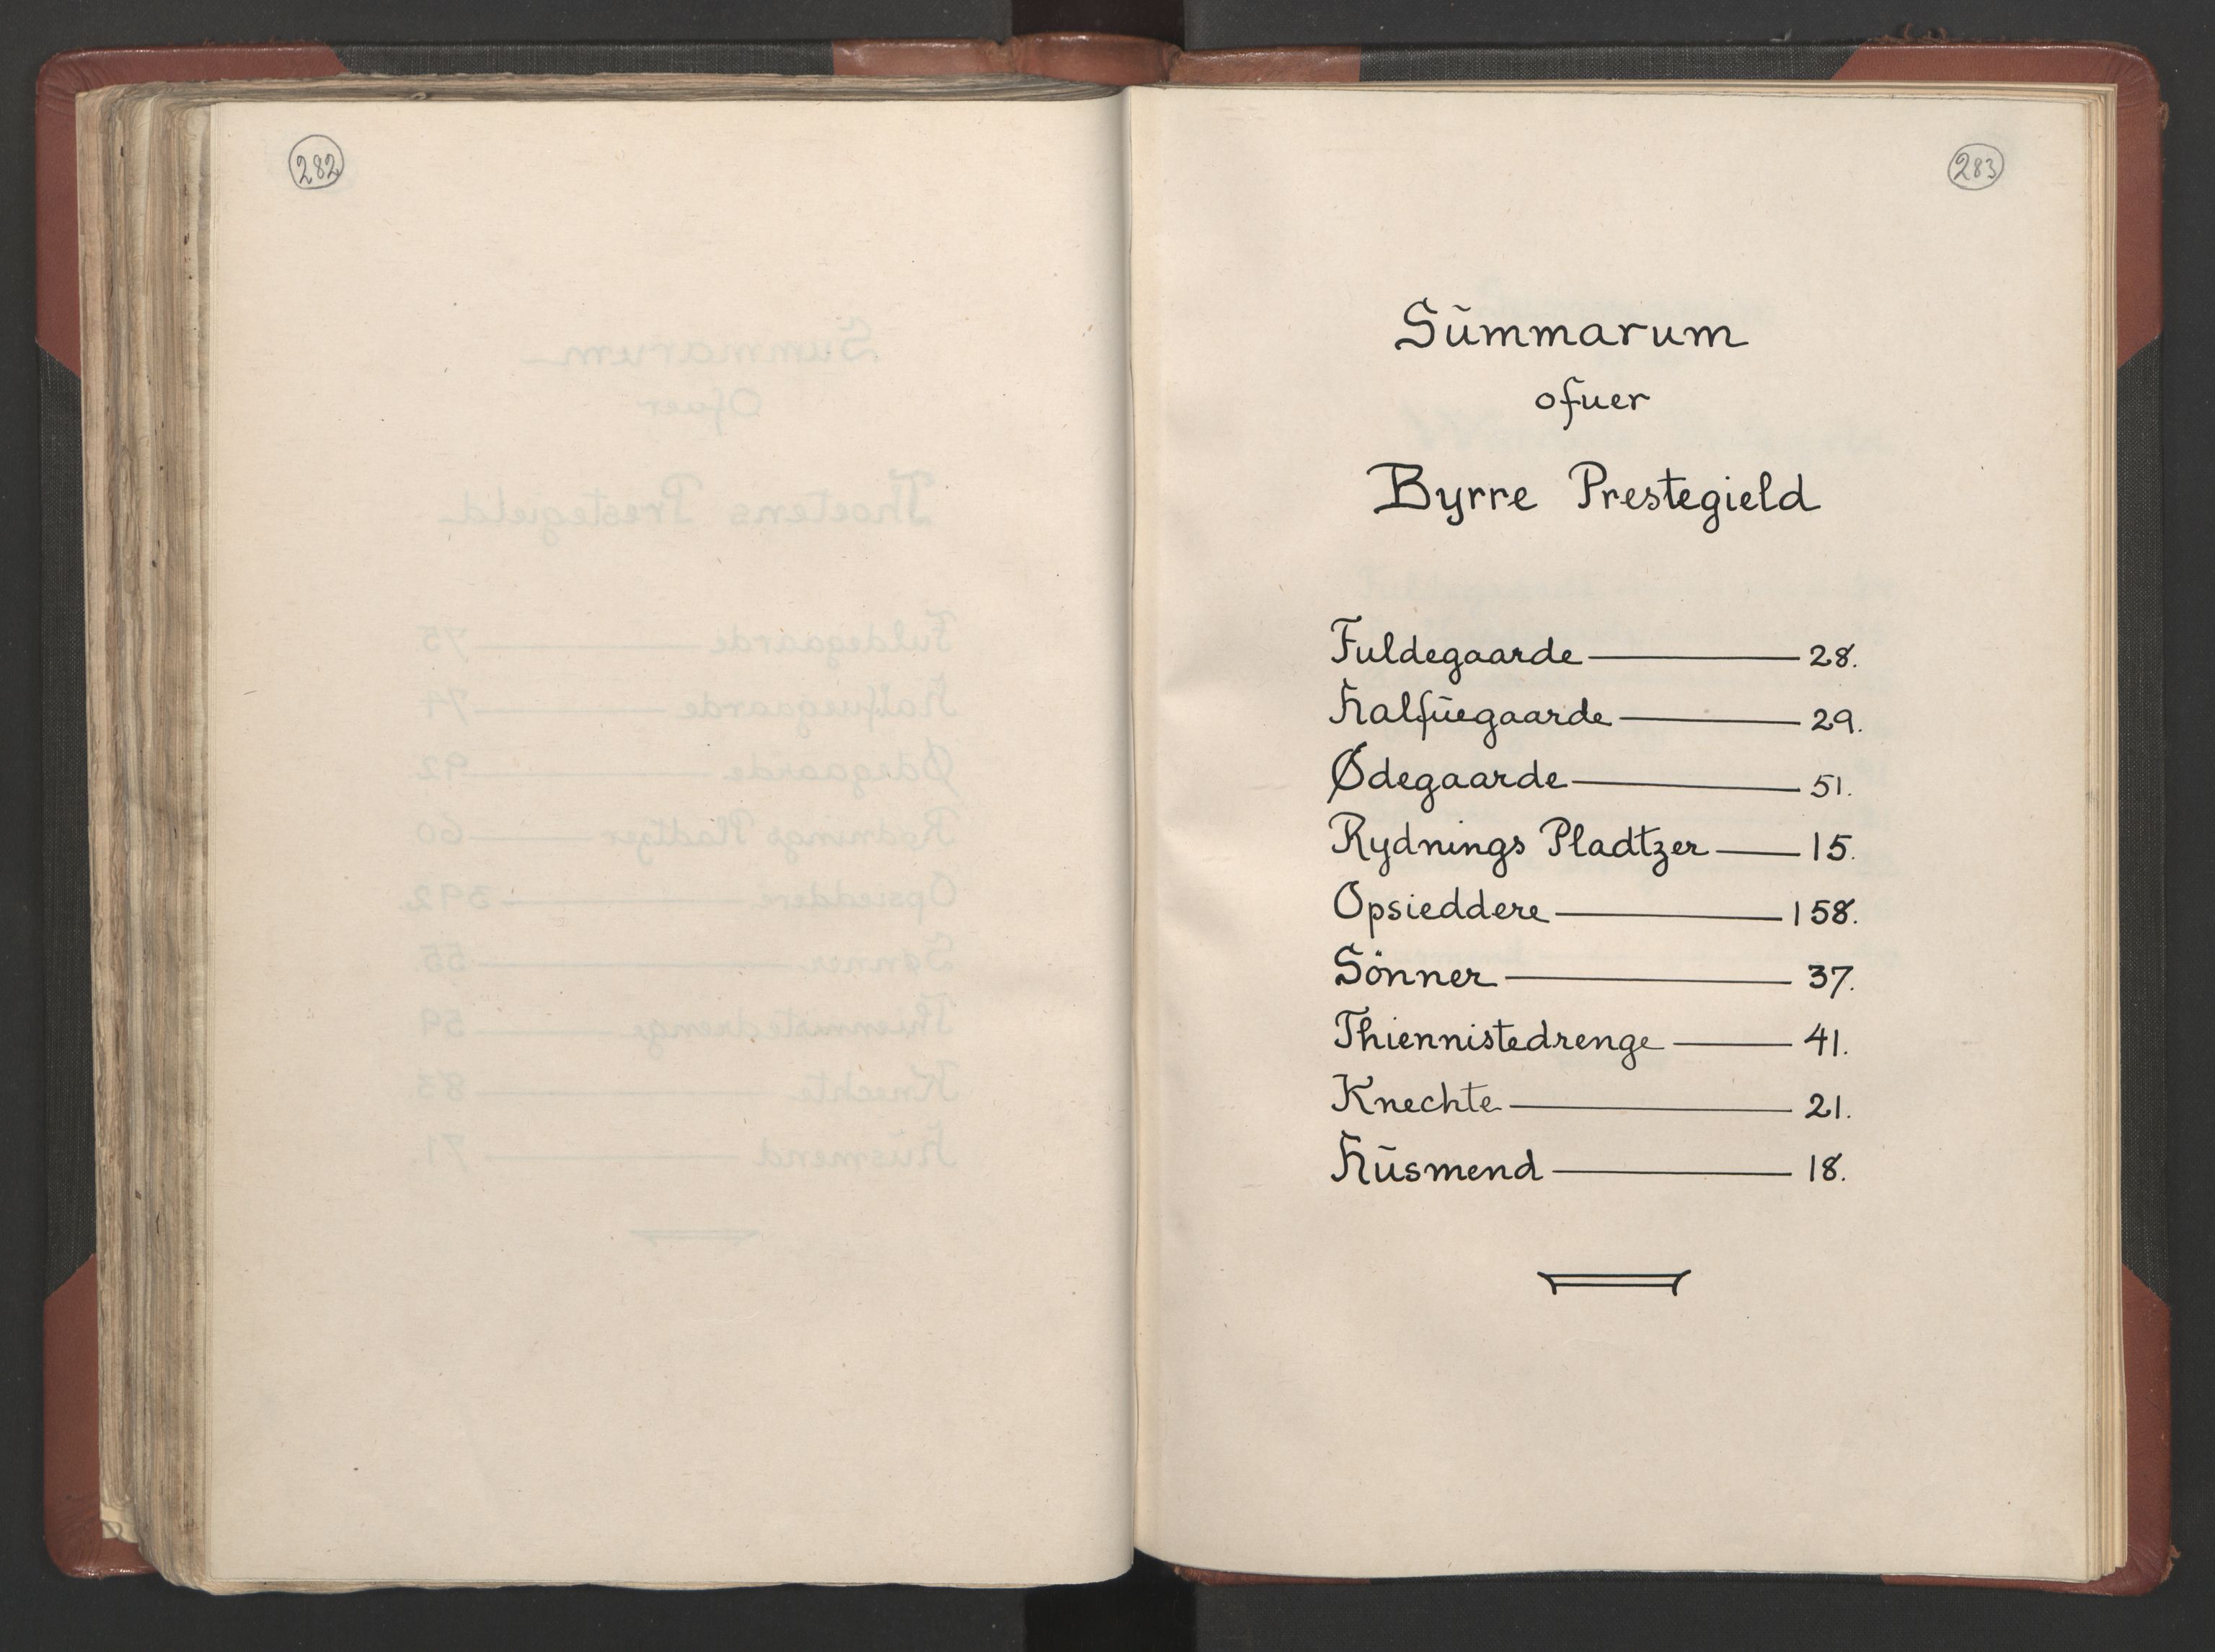 282
283
Sūmmarum
ofuer
Byrre Prestegield
Fuldegaarde 28.
Halfūegaarde 29.
Ødegaarde 51.
Rydnings Pladtzer 15.
Opsieddere 158.
Sönner 37.
Thiennistedrenge 41.
Knechte 21.
Hūsmend 18.